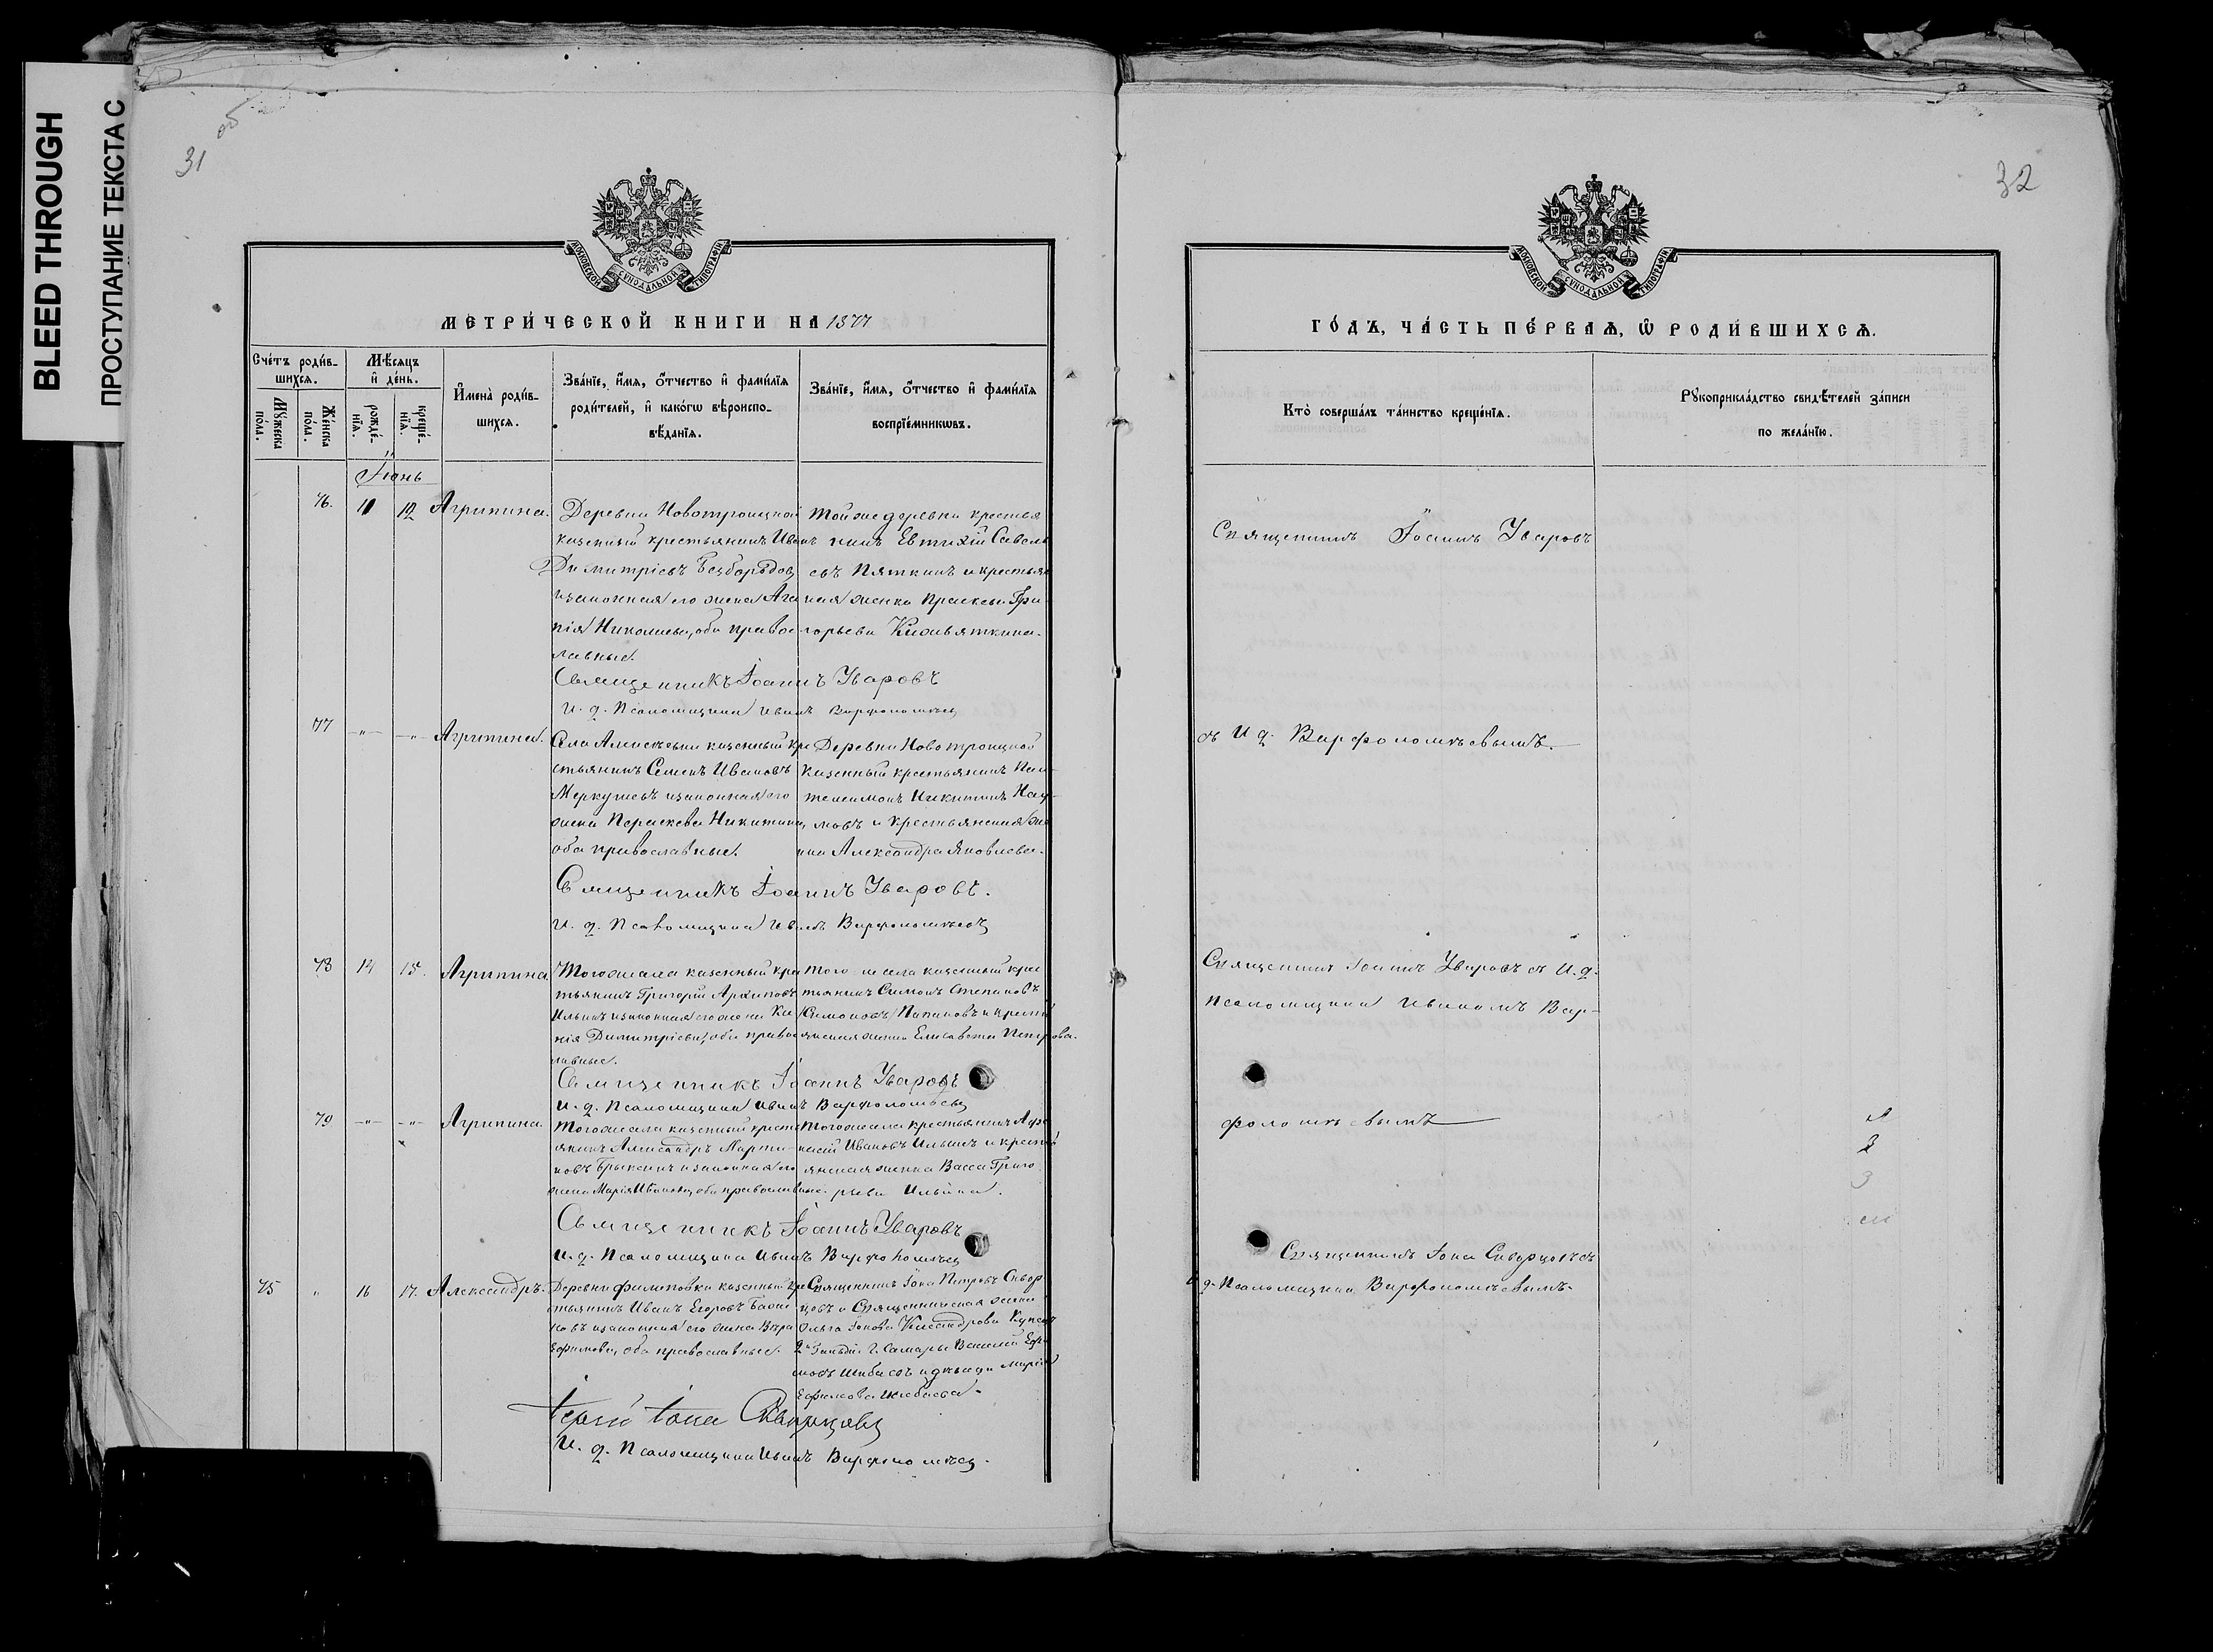 BLEED THROUGH
ПРОСТУПАНИЕ ТЕКСТА С
31 об
МОСКОВСКОЙ СѴНОДАЛЬНОЙ ТИПОГРАФІИ
МЕТРИ́ЧЕСКОЙ КНИГИ НА 1877
Сче́тъ роди́в-
шихсѧ.
Мѣ́сѧцъ
и҆ де́нь.
И҆мена̀ роди́в-
шихсѧ.
Зва́нїе, и҆́мѧ, ѻ҆́тчество и҆ фами́лїѧ
роди́телей, и҆ како́гѡ вѣроиспо-
вѣ́данїѧ.
Зва́нїе, и҆́мѧ, ѻ҆́тчество и҆ фами́лїѧ
воспрїе́мникѡвъ.
Мꙋ́жеска по́ла.
Же́нска по́ла.
рожде́-нїѧ.
креще́-нїѧ.
Іюнь
76. 11 12 Агрипина.
Деревни Новотроицкой
казенный крестьянинъ Иванъ
Димитріевъ Безбородов
и законная его жена Ага
пія Николаева, оба правос-
лавные.
тойже деревни крестья
нинъ Евтихій Савель
евъ Пяткинъ и крестьян
ская женка Праскева Гри
горьева
Священникъ Іоаннъ Уваровъ
И. д. Псаломщика Иванъ Варфоломѣевъ
77 -"- -"- Агрипина.
Села Алексѣевки казенный кре
стьянинъ Семенъ Ивановъ
Меркульевъ и законная его
жена Параскева Никитина,
оба православные.
Деревни Новотроицкой
казенный крестьянинъ Пан-
телеимонъ Никитинъ Нау-
мовъ и крестьянская же
нка Александра Яковлева.
Священникъ Іоаннъ Уваровъ.
И. д. Псаломщика Иванъ Варфоломѣевъ
78 14 15. Агрипина
Тогоже села казенный крес
тьянинъ Григорій Архиповъ
Ильинъ и законная его жена Ки
нія Димитріева, оба правос
лавные.
Того же села казенный крес
тьянинъ Симонъ Степановъ
и крестья
янская женка Елисавета Петрова.
Священникъ Іоаннъ Уваровъ
И. д. Псаломщика Иванъ Варфоломѣевъ
79 -"- -"- Агрипина.
Тогоже села казенный кресть
янинъ Александръ Марти-
новъ и законная его
жена Марія Иванова, оба православные.
Тогоже села крестьянинъ Афа
насій Ивановъ Ильинъ и кресть
янская женка Васса Григо
рьева Ильина.
Священникъ Іоаннъ Уваровъ
И. д. Псаломщика Иванъ Варфоломѣевъ
75 " 16 17. Александръ.
Деревни Филиповки казенный кре
стьянинъ Иванъ Егоровъ
и законная его жена Вѣра
Ефимова, оба православные.
Священникъ Іона Петровъ Сквор
цовъ и Священническая жена
Ольга Іонова
2й Гильдіи г. Самары Василій Ефи
мовъ Шибаевъ и дѣвица Марія
Ефимова Шибаева.
Іерей Іона Скворцовъ
И. д. Псаломщика Иванъ Варфоломѣевъ.
32
МОСКОВСКОЙ СѴНОДАЛЬНОЙ ТИПОГРАФІИ
ГО́ДЪ, ЧА́СТЬ ПЕ́РВАѦ, Ѡ҆ РОДИ́ВШИХСѦ.
Кто̀ соверша́лъ та́инство креще́нїѧ.
Рꙋкоприкла́дство свидѣ́телей за́писи
по жела́нїю.
Священникъ Іоаннъ Уваровъ
съ И д. Варфоломѣевымъ.
Священникъ Іоаннъ Уваровъ съ И. д.
Псаломщика Иваномъ Вар-
фоломѣевымъ
Священникъ Іона Скворцовъ съ
И. д. Псаломщика Варфоломѣевымъ.